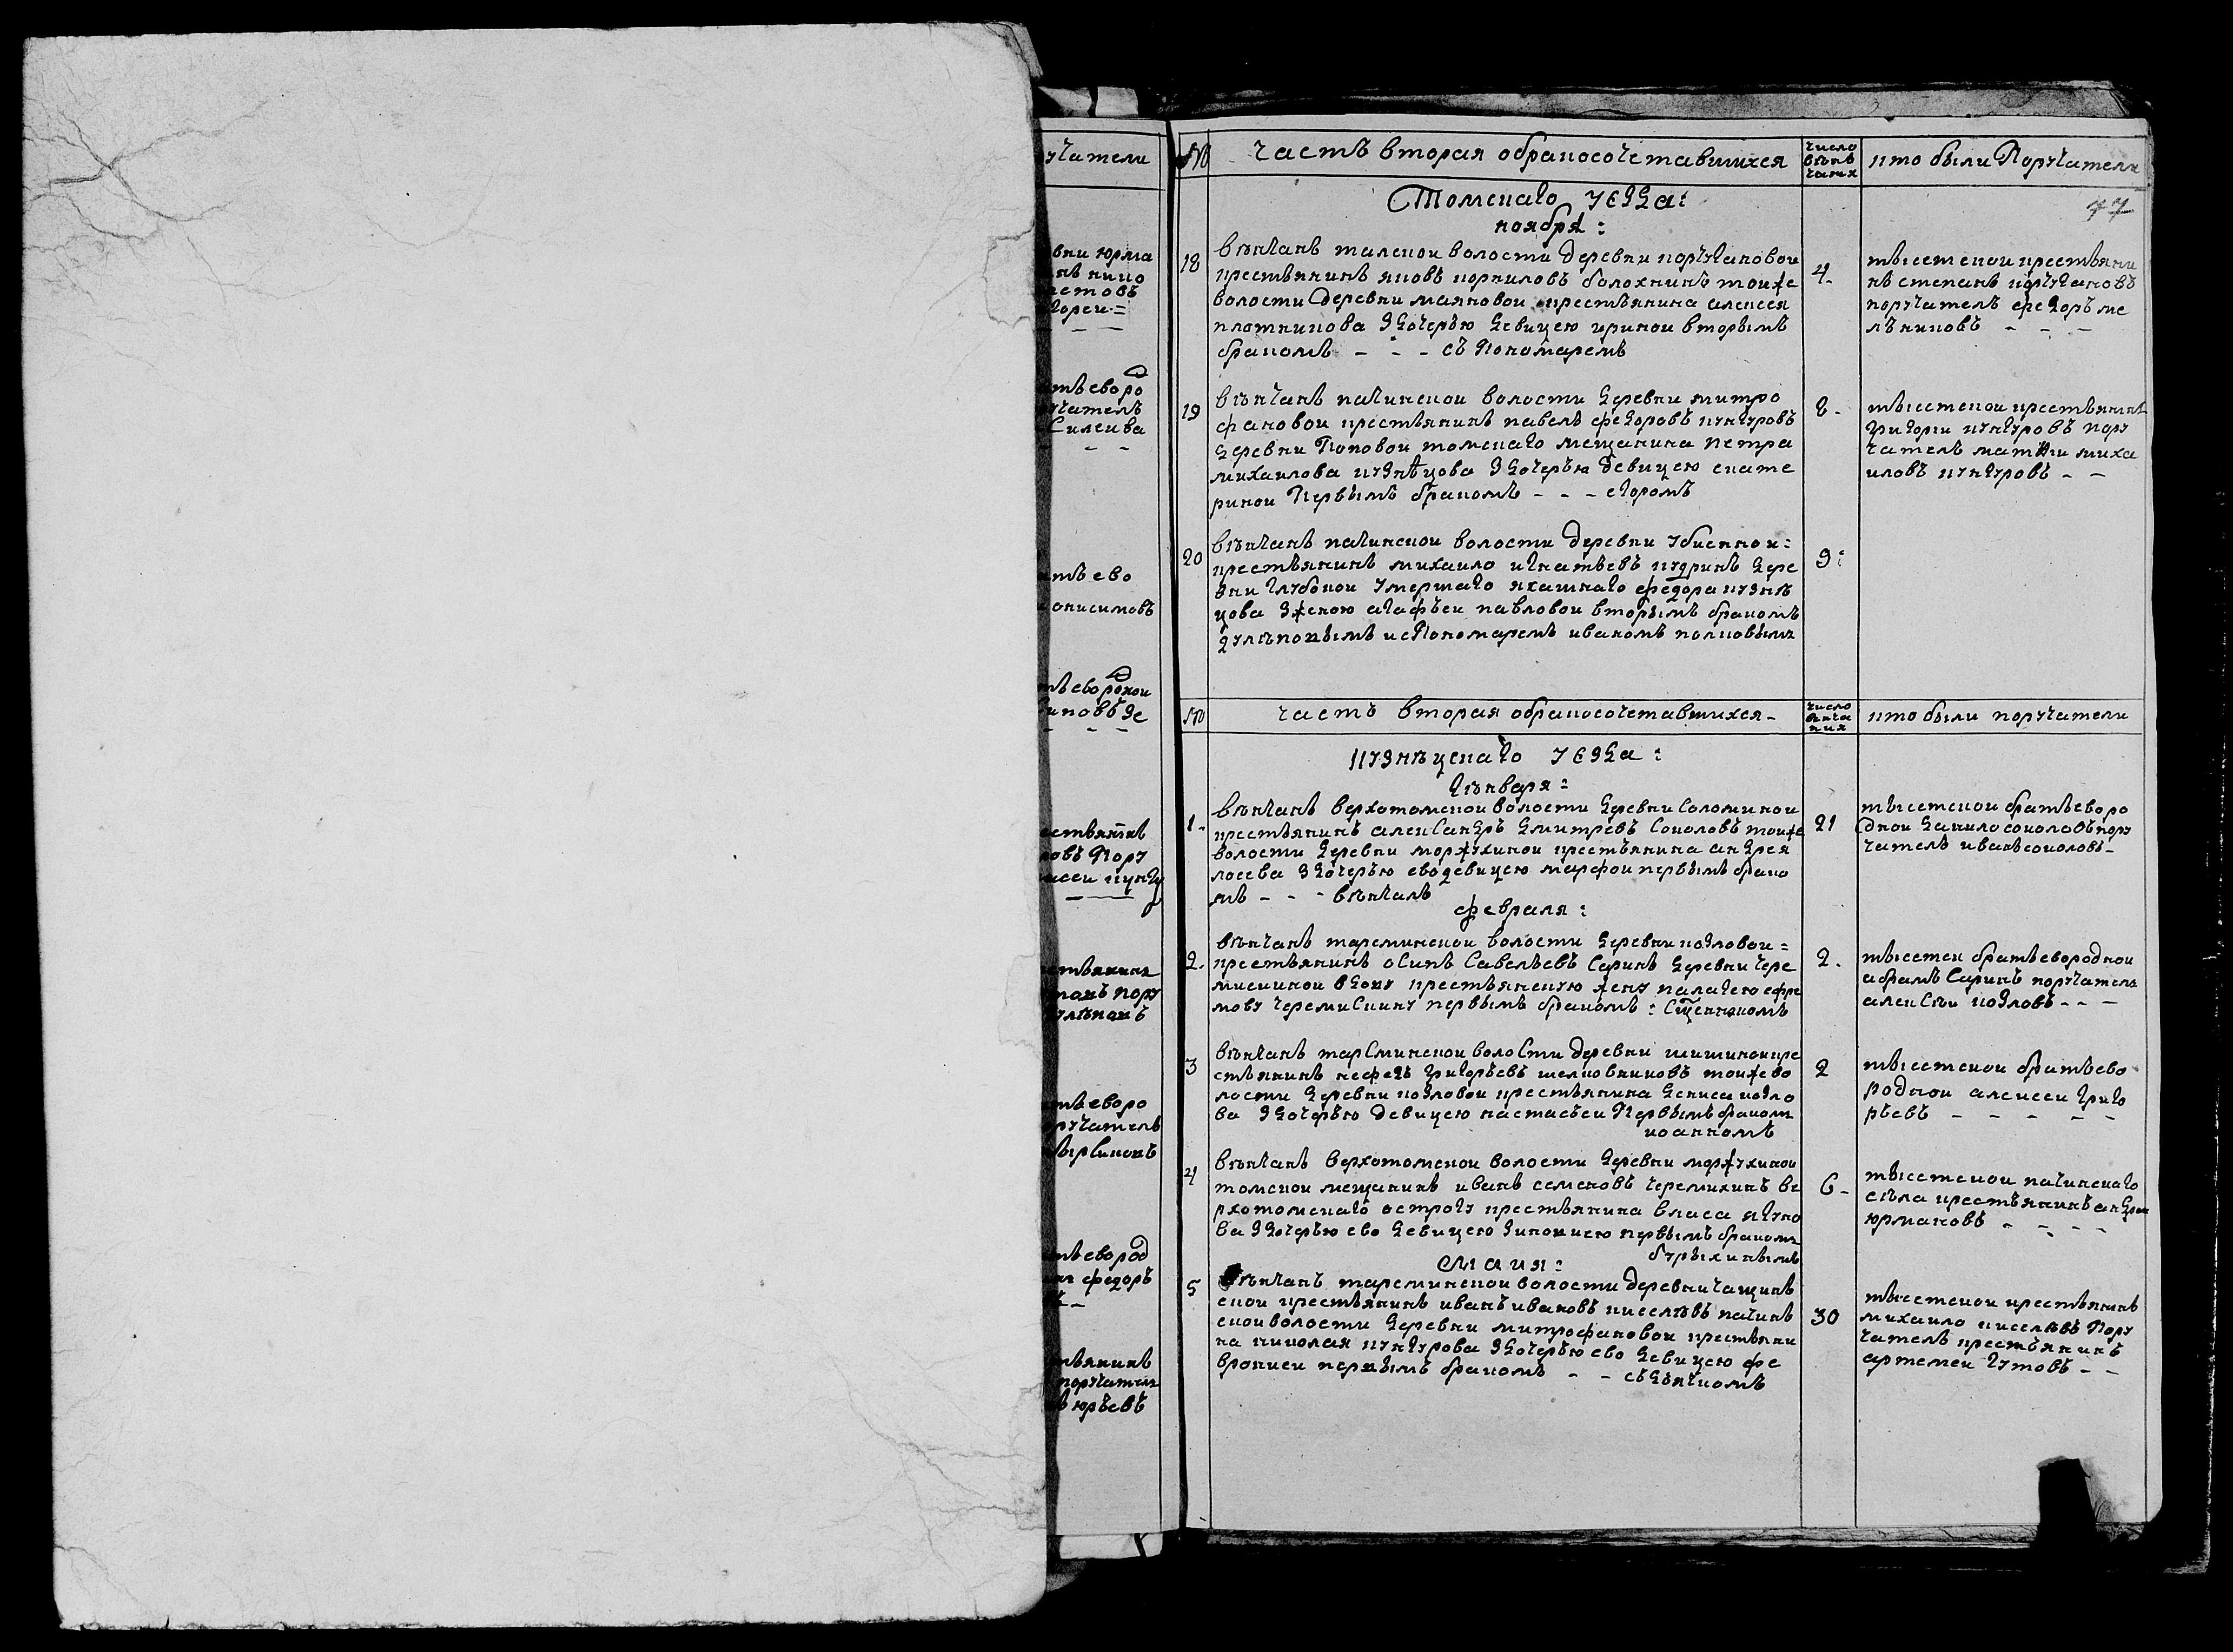 учатели
вни юрма
етовъ
тьеворо
учатель
Силеива
тьево
онисимовъ
ьевородной
тьеворо
учатель
ьевород
федоръ
поручатель
юрьевъ
№ часть вторая обракосочетавшихся число венчания кто были Поручатели
Томскаго уезда:
77
ноября:
18 венчанъ талской волости деревни корчугановой
крестьянинъ яковъ корниловъ болохнинъ тойже
волости деревни маяновой крестьянина алексея
плотникова здочерью девицею ириной вторымъ
бракомъ - - - съ Пономаремъ
4
тысетской крестьяни
нъ степанъ корчугановъ
поручатель федоръ ме
льниковъ - - -
19 венчанъ пачинской волости деревни митро
фановой крестьянинъ павелъ федоровъ кунгуровъ
деревни Поповой томскаго мещанина петра
михаилова кузнецова здочерью девицею екате
риной Первымъ бракомъ - - - егоромъ
8-
тысетской крестьянинъ
григорий кунгуровъ пору
чатель матвии миха
иловъ кунгуровъ - -
20 венчанъ пачинской волости деревни убиенной:
крестьянинъ михаило игнатьевъ кудринъ дере
вни глубокой умершаго яхашнаго федора кузне
цова зженою агафьей павловой вторымъ бракомъ
дулеповымъ и сПономаремъ иваномъ поповымъ
9:
№ часть вторая обракосочетавшихся - число венчания кто были поручатели
кузнецкаго уезда:
генваря:
1- венчанъ верхотомской волости деревни Соломиной
крестьянинъ алексАндръ дмитревъ Соколовъ тойже
волости деревни моржухиной крестьянина андрея
лосева здочерью еводевицею марфой первымъ брако
мъ - - - венчалъ
21
тысетской братьеворо
дной данило соколовъ пору
чатель иванъ соколовъ -
февраля:
2. венчанъ тарсминской волости деревни козловой =
крестьянинъ оСипъ Савельевъ Саринъ деревни чере
мискиной вдову крестьянскую жену палагею ефре
мову черемиСкину первымъ бракомъ: Сщенникомъ
2.
тысетски братьевородной
абрамъ Саринъ поручатель
алекСей козловъ - - -
3 венчанъ тарСминской волоСти деревни шишкинойкре
стьянинъ нефедъ григорьевъ шелковниковъ тойжево
лости деревни козловой крестьянина дениса козло
ва здочерью девицею настасьей Первымъ бракомъ
иоанномъ
2
тысетской братьево
родной алексей григо
рьевъ - - - - -
4 венчанъ верхотомской волости деревни моржухиной
томской мещанинъ иванъ семеновъ черемихинъ ве
рхотомскаго острогу крестьянина власа ягуно
ва здочерью ево девицею зиновиею первымъ бракомъ
бурыхинымъ
6-
тысетской пачинскаго
села крестьянинъ андрей
юрмановъ - - - -
маия:
5 венчанъ тарсминской волости деревни чащинъ
ской крестьянинъ иванъ ивановъ киселевъ пачинъ
ской волости деревни митрофановой крестьяни
на николая кунгурова здочерью ево девицею фе
вронией первымъ бракомъ - - съдьячкомъ
30
тысетской крестьянинъ
михаило киселевъ Пору
чатель крестьянинъ
артемей гутовъ - -